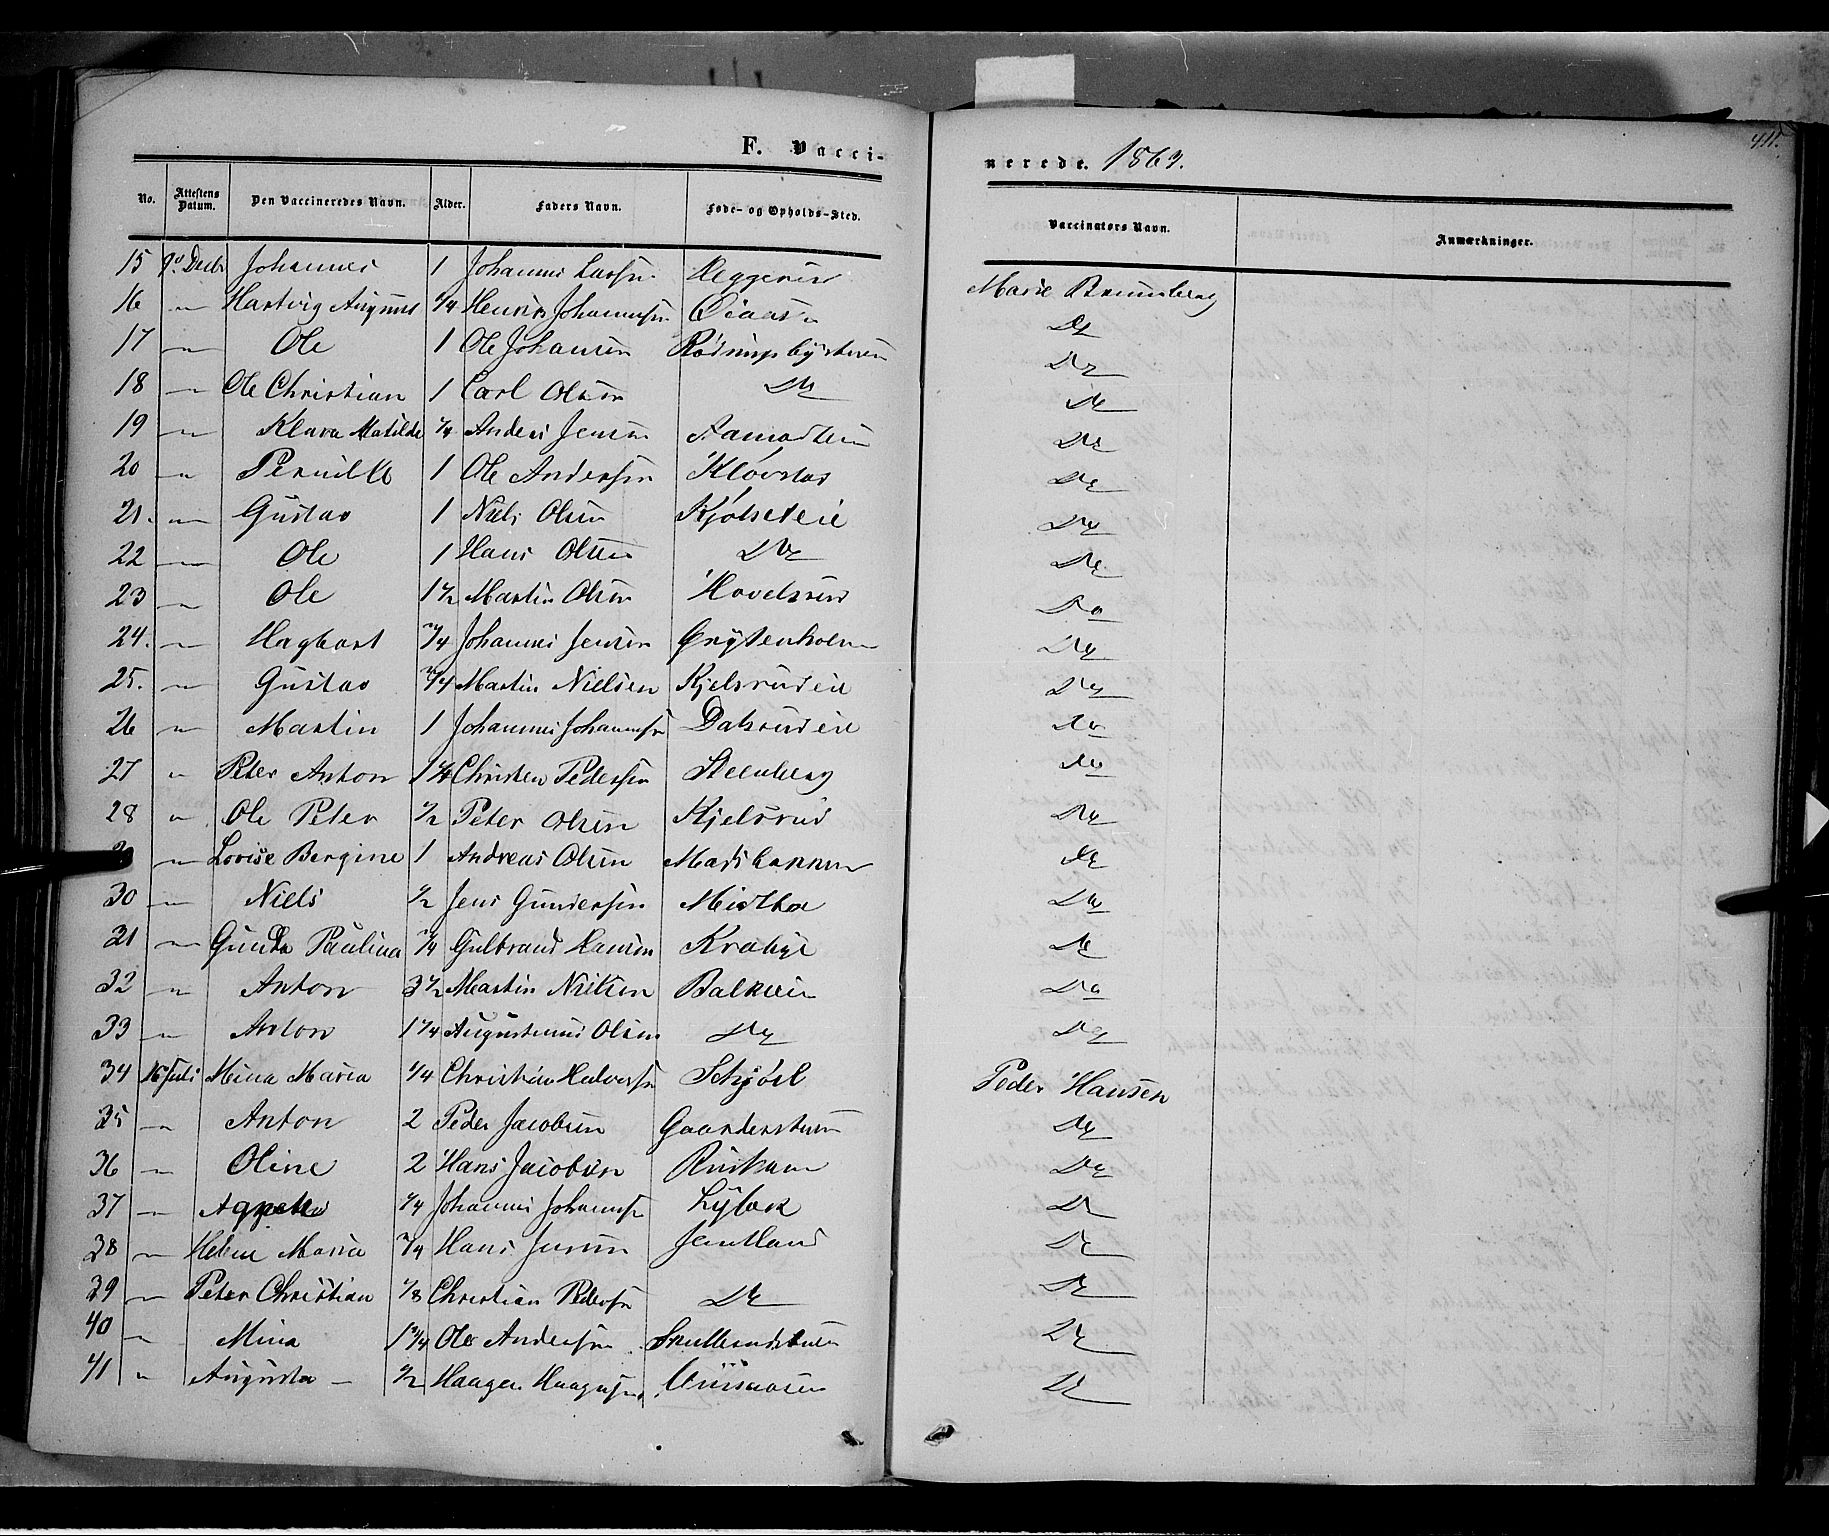 F. Vaccinerede. 1869.
411.
No. Attestens Datum. Den Vaccineredes Navn. Alder. Faders Navn. Føde- og Opholds-Sted. Vaccinators Navn. Anmærkninger.
15 Johannes 1 Johannes Larsen Heggerud Marie
16 " Hartvig August 1/4 Johannessen Do
17 " Ole 1 Ole Johansen Do
18 " Ole Christian 1 Carl Olsen Do Do
19 " Klara Matilde 1/4 Anders Jensen Do
20 " Pernille 1 Ole Andersen Kløvstad Do
21. " Gustav 1 Niels Olsen Kjølseteie Do
22 " Ole 1 Hans Olsen Do Do
23 " Ole 1 1/2 Martin Olsen Hovelsrud Do
24. " Hagbart 3/4 Johannes Jensen Do
25. " Gustav 3/4 Martin Nielsen Kjelsrudeie Do
26 " Martin 1 Johannes Johannessen Dalsrudeie Do
27 " Peter Anton Christen Pedersen Steenberg Do
28 " Ole Peter 1/2 Peter Olsen Kjelsrud Do
" Lovise Bergine 1 Andreas Olsen Do
30 " Niels 1/2 Jens Gundersen Do
31 " Paulina 1/4 Gulbrand Hansen Krabye Do
32 " Anton 3 1/2 Martin Nielsen Balkeeie Do
33 " Anton 1 1/4 Augustinus Olsen Do Do
34 16 Juli Mina Maria 1/4 Christian Halvorsen Peder Hansen
35 " Anton 2 Peder Jacobsen Gaarderstuen Do
36 " Oline 2 Hans Jacobsen Do
37 " Agnethe 1/4 Johannes Johannessen Lybæk Do
38 " Helene Maria 3/4 Hans Jensen Do
39 " Peter Christian 1/8 Christian Pedersen Do Do
40 " Mina 1 3/4 Ole Andersen Do
41 " Augusta 1/2 Haagen Haagensen Do